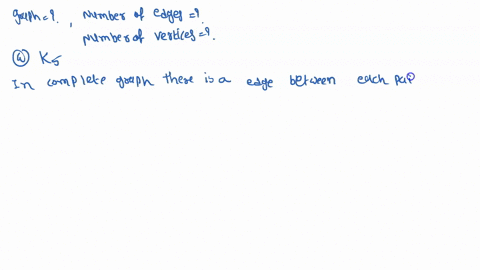 graph=?. , Number of edges=?.
Number of vertices=?.
ⓐ K5
In complete graph there is a edge between each pair